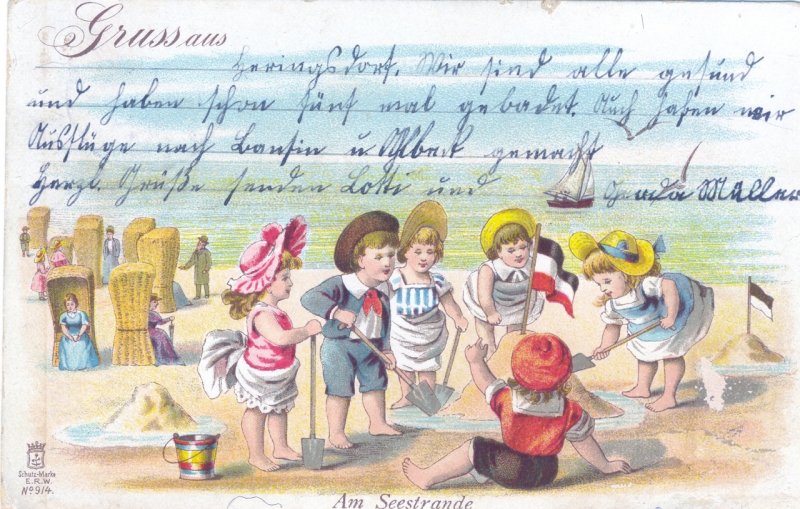 Gruss aus
Heringsdorf. Wir sind alle gesund
und haben schon fünf mal gebadet. Auch haben wir
Ausflüge nach Bansin u Ahlbeck gemacht
Herzl. Grüße senden Lotti und Müller
Schutz-Marke
E.R.W.
No 914.
Am Seestrande